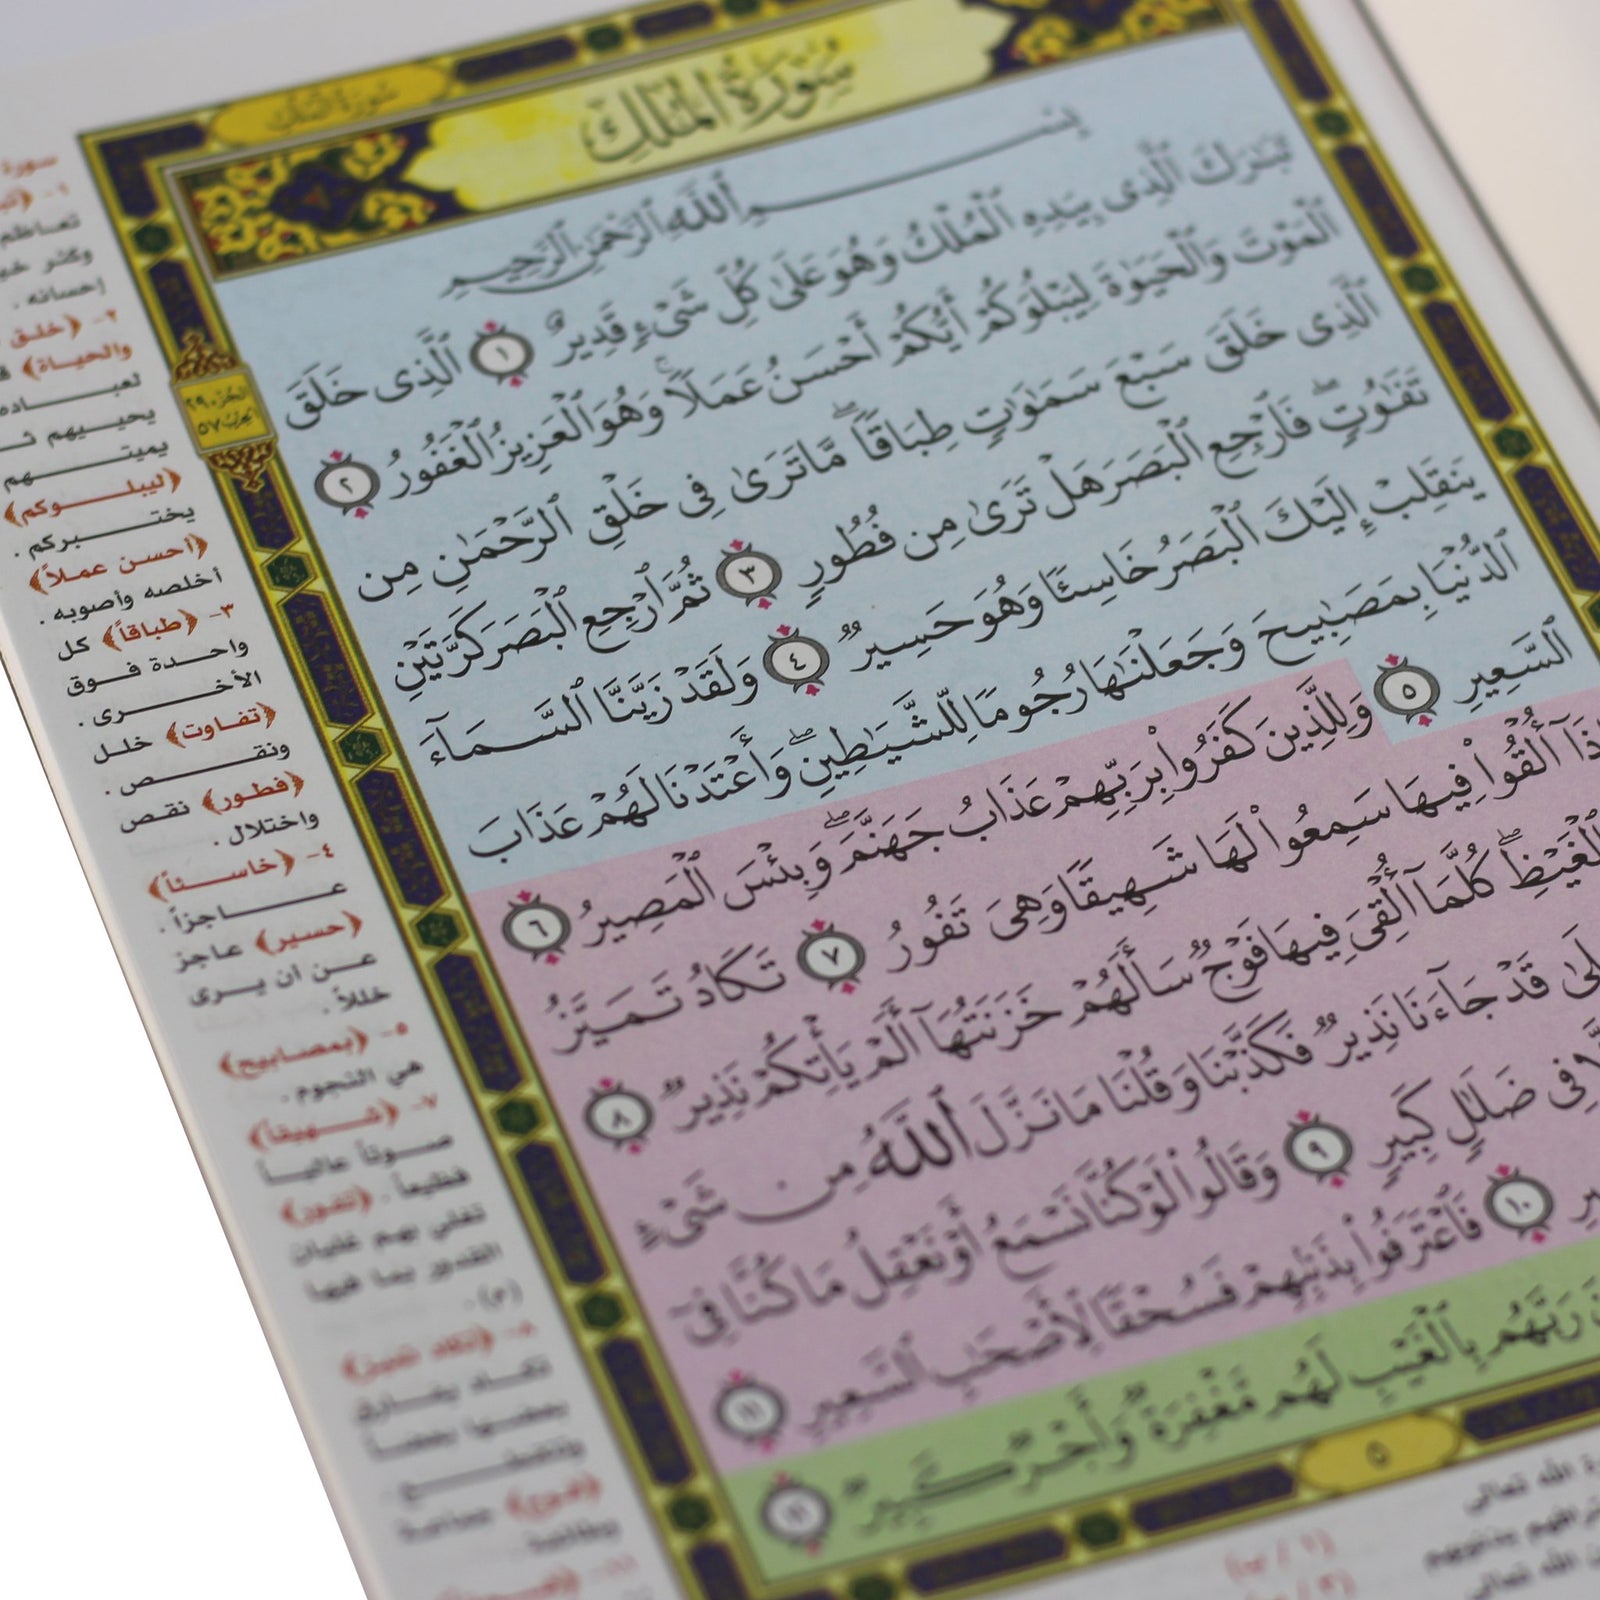 سورة الملك
سُورَةُ المُلْكِ
بِسْمِ ٱللَّهِ ٱلرَّحْمَٰنِ ٱلرَّحِيمِ
تَبَٰرَكَ ٱلَّذِى بِيَدِهِ ٱلْمُلْكُ وَهُوَ عَلَىٰ كُلِّ شَىْءٍ قَدِيرٌ ١ ٱلَّذِى خَلَقَ
ٱلْمَوْتَ وَٱلْحَيَوٰةَ لِيَبْلُوَكُمْ أَيُّكُمْ أَحْسَنُ عَمَلًا ۚ وَهُوَ ٱلْعَزِيزُ ٱلْغَفُورُ ٢
ٱلَّذِى خَلَقَ سَبْعَ سَمَٰوَٰتٍ طِبَاقًا ۖ مَّا تَرَىٰ فِى خَلْقِ ٱلرَّحْمَٰنِ مِن
تَفَٰوُتٍ ۖ فَٱرْجِعِ ٱلْبَصَرَ هَلْ تَرَىٰ مِن فُطُورٍ ٣ ثُمَّ ٱرْجِعِ ٱلْبَصَرَ كَرَّتَيْنِ
يَنقَلِبْ إِلَيْكَ ٱلْبَصَرُ خَاسِئًا وَهُوَ حَسِيرٌ ٤ وَلَقَدْ زَيَّنَّا ٱلسَّمَآءَ
ٱلدُّنْيَا بِمَصَٰبِيحَ وَجَعَلْنَٰهَا رُجُومًا لِّلشَّيَٰطِينِ ۖ وَأَعْتَدْنَا لَهُمْ عَذَابَ
ٱلسَّعِيرِ ٥ وَلِلَّذِينَ كَفَرُوا۟ بِرَبِّهِمْ عَذَابُ جَهَنَّمَ ۖ وَبِئْسَ ٱلْمَصِيرُ ٦
أُلْقُوا۟ فِيهَا سَمِعُوا۟ لَهَا شَهِيقًا وَهِىَ تَفُورُ ٧ تَكَادُ تَمَيَّزُ
ٱلْغَيْظِ ۖ كُلَّمَآ أُلْقِىَ فِيهَا فَوْجٌ سَأَلَهُمْ خَزَنَتُهَآ أَلَمْ يَأْتِكُمْ نَذِيرٌ ٨
قَدْ جَآءَنَا نَذِيرٌ فَكَذَّبْنَا وَقُلْنَا مَا نَزَّلَ ٱللَّهُ مِن شَىْءٍ
فِى ضَلَٰلٍ كَبِيرٍ ٩ وَقَالُوا۟ لَوْ كُنَّا نَسْمَعُ أَوْ نَعْقِلُ مَا كُنَّا فِىٓ
١٠ فَٱعْتَرَفُوا۟ بِذَنۢبِهِمْ فَسُحْقًا لِّأَصْحَٰبِ ٱلسَّعِيرِ ١١
رَبَّهُم بِٱلْغَيْبِ لَهُم مَّغْفِرَةٌ وَأَجْرٌ كَبِيرٌ ١٢
٥
الجزء ٢٩
الحزب ٥٧
سورة
١-
تعاظم
وكثر
إحسانه .
٢- ﴿خلق
والحياة﴾
لعباده
يحييهم
يميتهم
﴿ليبلوكم﴾
يختبركم .
﴿أحسن عملاً﴾
أخلصه وأصوبه .
٣- ﴿طباقاً﴾ كل
واحدة فوق
الأخرى .
﴿تفاوت﴾ خلل
ونقص .
﴿فطور﴾ نقص
واختلال .
٤- ﴿خاسئاً﴾
عاجزاً .
﴿حسير﴾ عاجز
عن ان يرى
خللاً .
٥- ﴿بمصابيح﴾
هي النجوم .
٧- ﴿شهيقاً﴾
صوتاً عالياً
فظيعاً . ﴿تفور﴾
تغلي بهم غليان
القدور بما فيها
(م) .
٨- ﴿تكاد تميز﴾
تكاد يفارق
بعضها بعضاً
﴿فوج﴾ جماعة
الله تعالى
الله تعالى